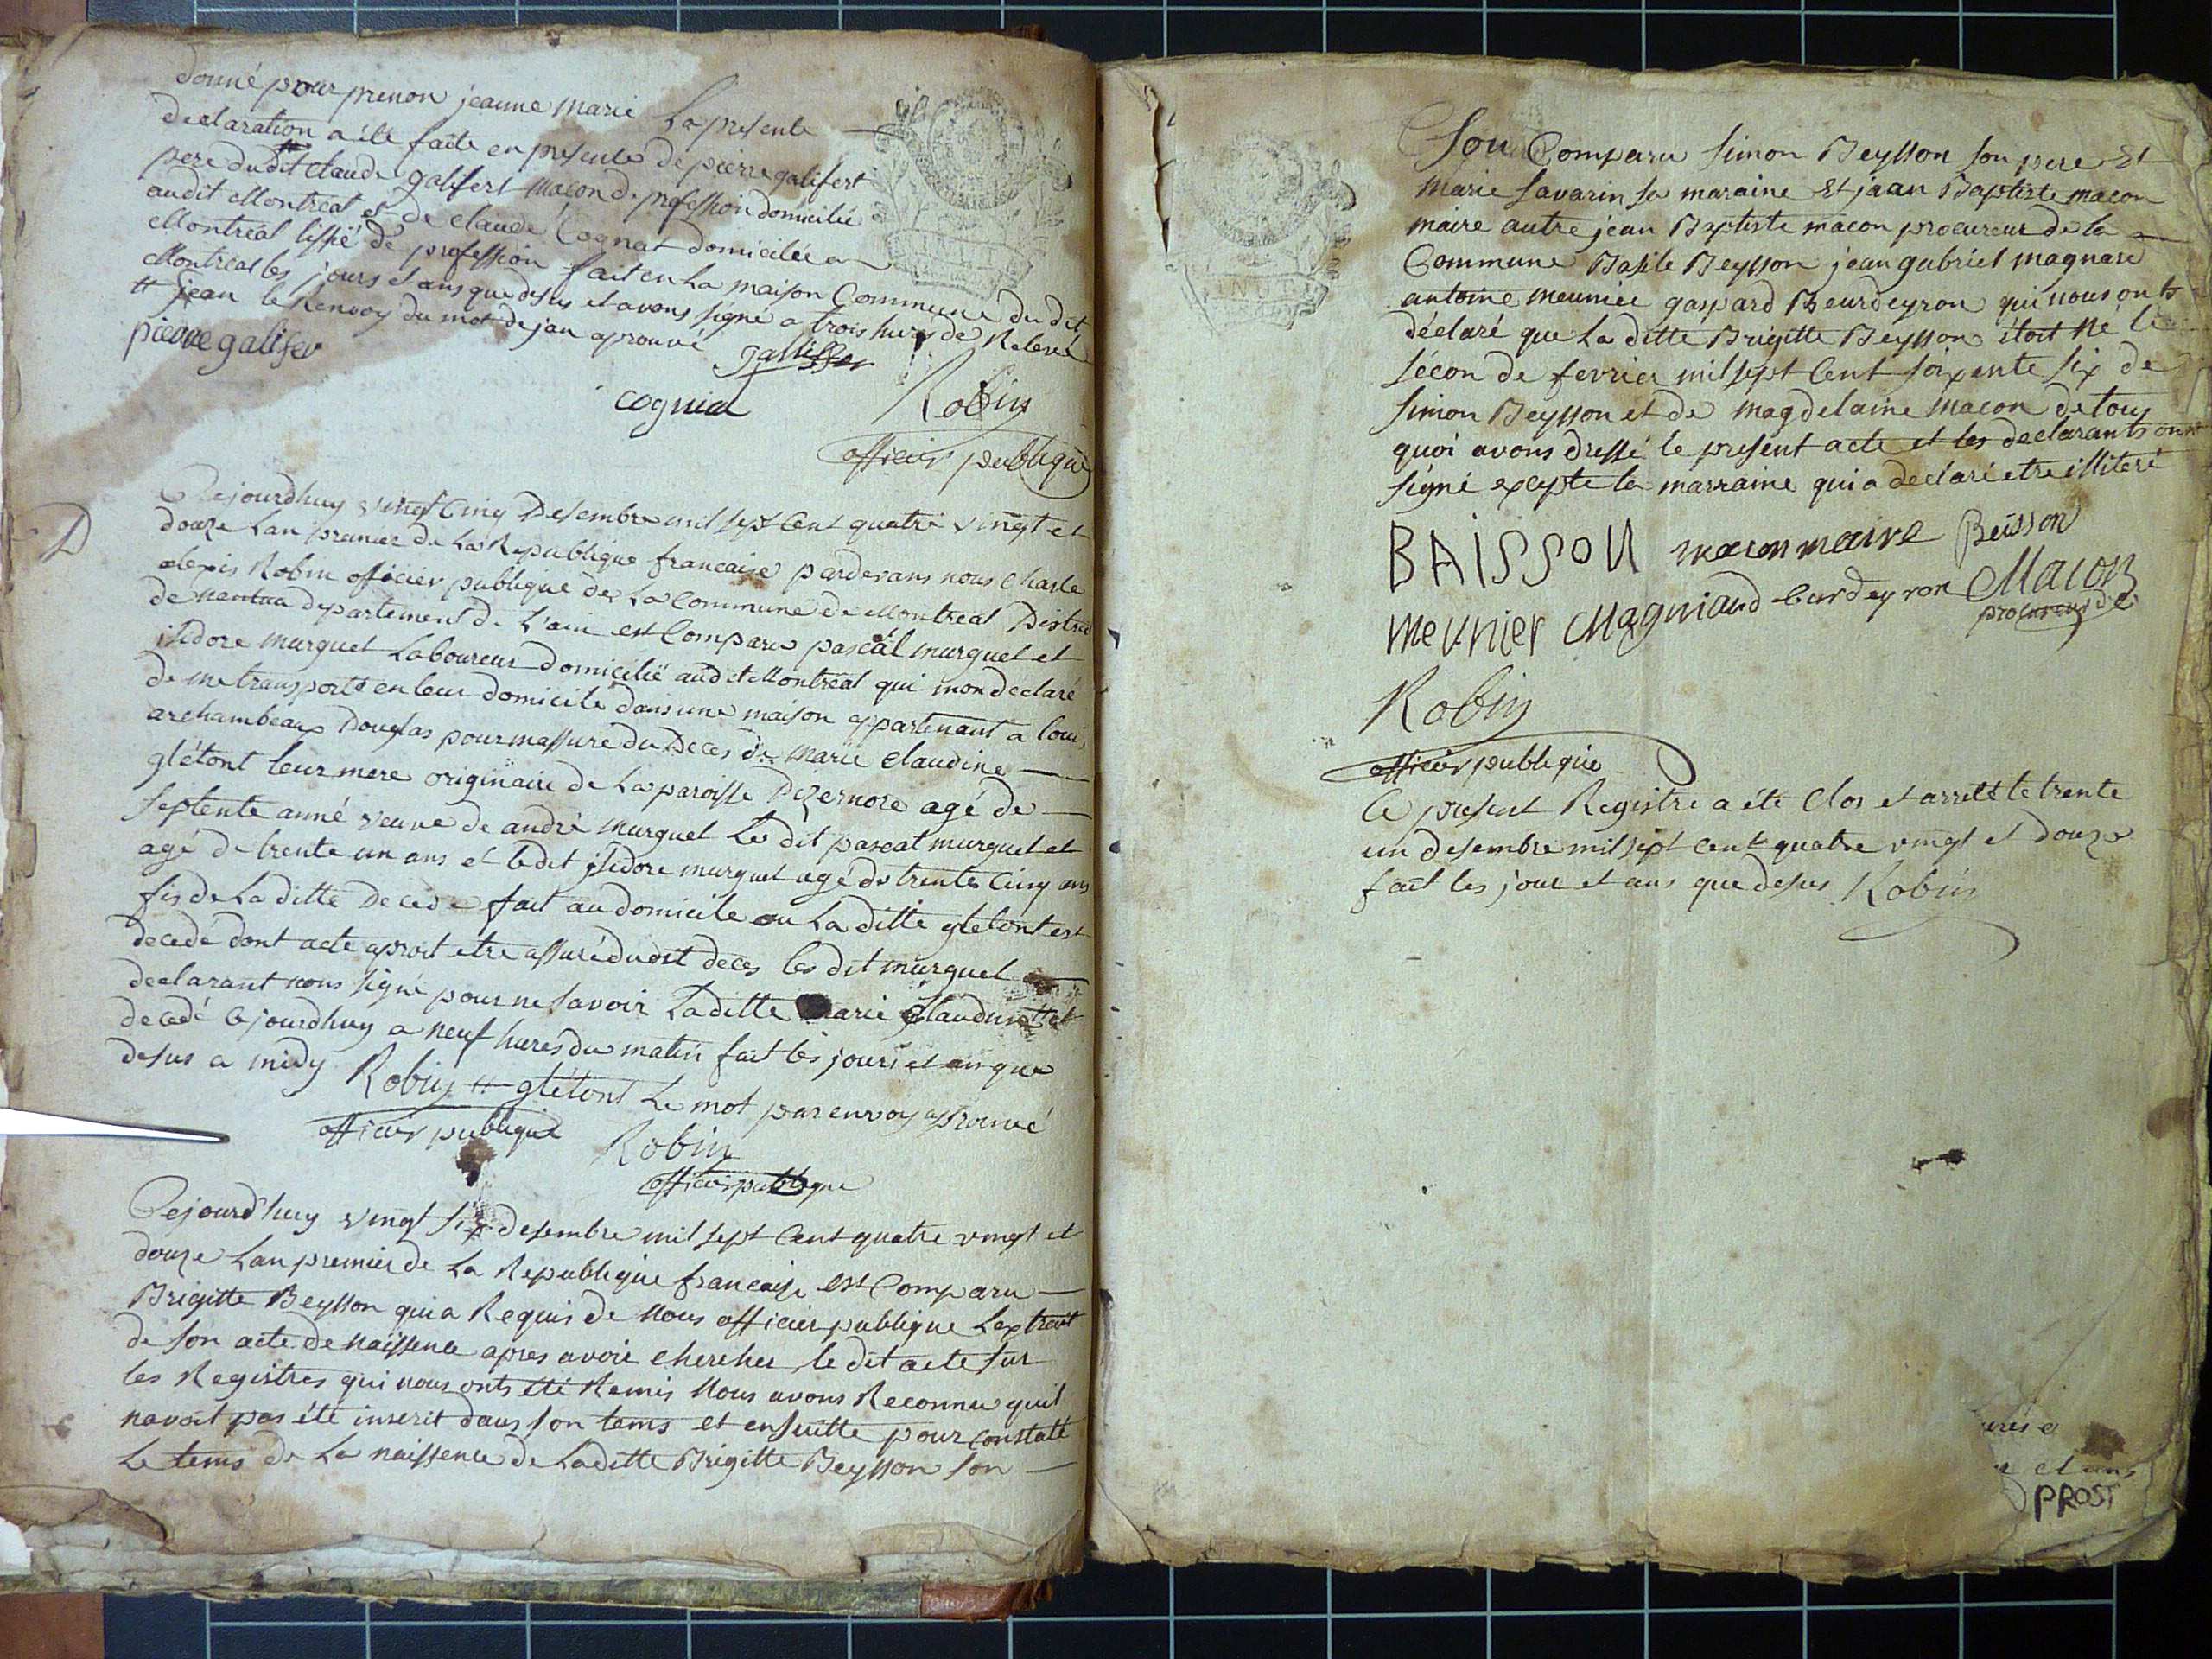 donné pour prenon jeanne marie La presente
declaration a été faite en presente de pierre galifert
pere dudit Claude galifert macon de profession domicilié
audit Montreal et de claude Cognat domicilée a
Montreal tissié de profession fait en La maison Commune du dit
Montreal les jours et ans que desus et avons signé a trois hures de Relevé
# jean le Renvoy du mot de jan aprouvé
pierre galifer
gallifer
cognia
Robin
officier publique
D
Cejourdhuy vingt Cinq Desembre mil sept Cent quatre vingt et
douze Lan premier de La Republique francaise pardevans nous Charle
alexis Robin officier publique de La Commune de Montreal District
de nantua departement de L'ain est Comparu pascal murguet et
isidore murguet Laboureur domicilié audit Montreal qui mon declaré
de me transporté en leur domicile dans une maison appartenant a Loui
archambeaux Douglas pour massuré du Deces de marie Claudine
glétont leur mere originaire de La paroisse Dizernore agé de
septente anné veuve de andré murguet Le dit pascal murguet et
agé de trente un ans et ledit jsidore murguet agé de trente Cinq ans
fis de La ditte Decede fait au domicile ou La ditte gletont est
decedé dont acte aproit etre assuré dudit deces les dit murguet
declarant nons signé pour ne savoir Laditte marie Claudine #et
decedé Cejourdhuy a neuf hures du matin fait les jours et an que
desus a midy Robin # glétont Le mot par envoy aprouvé
officier publique
Robin
officier publique
Cejourd'huy vingt six desembre mil sept Cent quatre vingt et
douze Lan premier de La Republique francaise est Comparu
Brigitte Beysson qui a Requis de nous officier publique Lextrait
de son acte de naissence apres avoir chercher le dit acte sur
les Registres qui nous onts été Remis nous avons Reconnu quil
navoit pas été inscrit dans son tems et ensuitte pour constaté
Le tems de La naissence de Laditte Brigitte Beysson son
Sou Comparu Simon Beysson son pere Et
marie Savarin sa maraine Et jaan Baptiste macon
maire autre jean Baptiste macon procureur de la
Commune Basile Beysson jean gabriel magnard
antoine meunier gaspard Beurdeyron qui nous onts
déclaré que La ditte Brigitte Beysson étoit né le
sécon de fevrier mil sept Cent soixente six de
simon Beysson et de magdelaine macon de tous
quoi avons dressé le present acte et les declarants ont
signé exepte la marraine qui a declaré etre illiteré
BAISSON macon maire Beisson
Meunier Magniand burdeyron Macon
procureur de
Robin
officier publique
Ce present Registre a été Clos et arretté le trente
un desembre mil sept cent quatre vingt et douze
fait les jour et ans que desus Robin
et ans
PROST